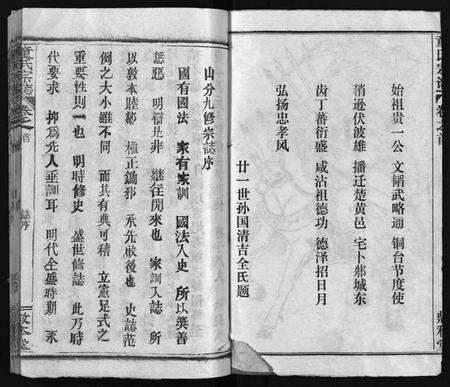 始祖贵一公 文韬武略通 铜台节度使
稍逊伏波雄 播迁楚黄邑 宅卜邾城东
齿丁蕃衍盛 咸沾祖德功 德泽招日月
弘扬忠孝风
廿一世孙国清吉全氏题
山分九修宗誌序
國有國法 家有家訓 國法入史 所以奨善
懲惡 明辯是非 継往開來也 家訓入誌 所
以敦本睦鄰 植正鋤邪 承先啟後也 史誌范
例之大小雖不同 而其有典可稽 立憲足式之
重要性則一也 明時修史 盛世修誌 此乃時
代要求 抑為先人垂訓耳 明代全盛時期
童氏宗誌 卷之首 誌序
敦本堂